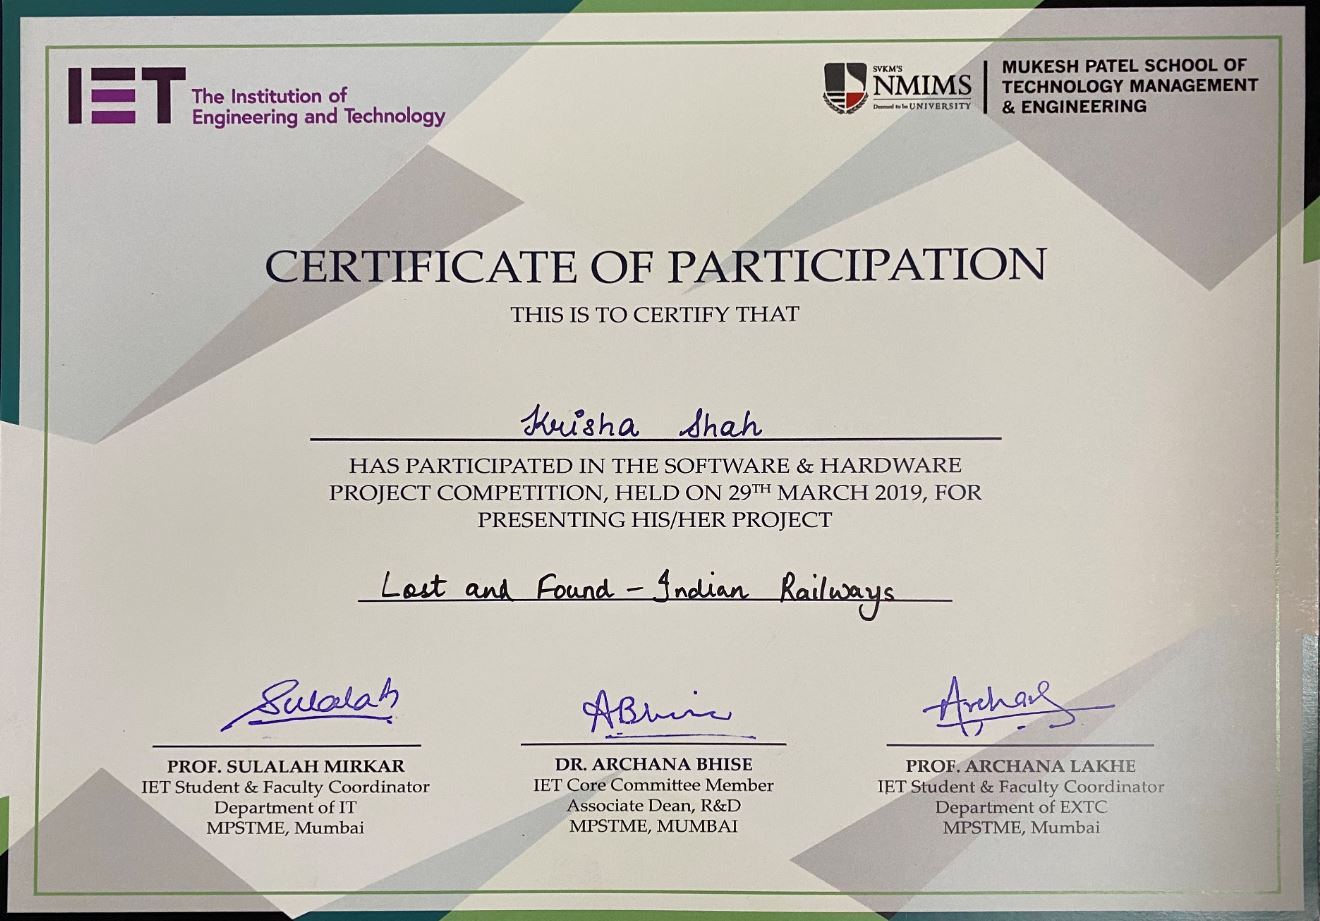 IET The Institution of
Engineering and Technology
SVKM'S
NMIMS
Deemed to be UNIVERSITY
MUKESH PATEL SCHOOL OF
TECHNOLOGY MANAGEMENT
& ENGINEERING
CERTIFICATE OF PARTICIPATION
THIS IS TO CERTIFY THAT
Krisha Shah
HAS PARTICIPATED IN THE SOFTWARE & HARDWARE
PROJECT COMPETITION, HELD ON 29TH MARCH 2019, FOR
PRESENTING HIS/HER PROJECT
Lost and Found - Indian Railways
Sulalah
PROF. SULALAH MIRKAR
IET Student & Faculty Coordinator
Department of IT
MPSTME, Mumbai
ABhise
DR. ARCHANA BHISE
IET Core Committee Member
Associate Dean, R&D
MPSTME, MUMBAI
Archana
PROF. ARCHANA LAKHE
IET Student & Faculty Coordinator
Department of EXTC
MPSTME, Mumbai